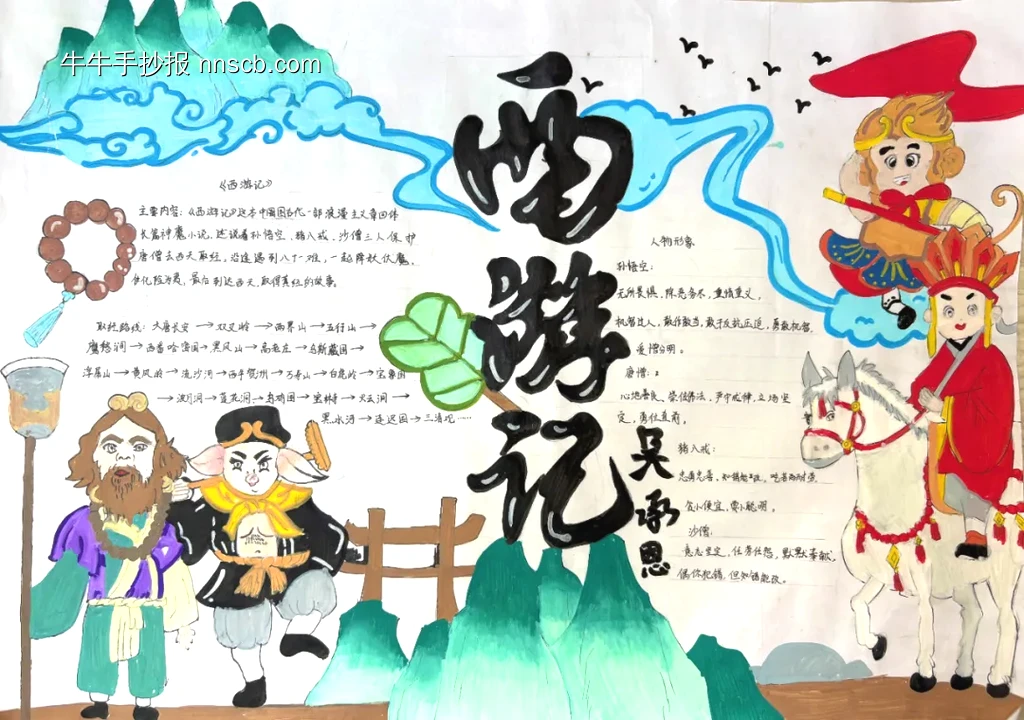 牛牛手抄报 nnscb.com
西游记
吴承恩
《西游记》
主要内容:《西游记》这本中国古代一部浪漫主义章回体
长篇神魔小说,述说着孙悟空、猪八戒、沙僧三人保护
唐僧去西天取经,沿途遇到八十一难,一起降妖伏魔,
化险为夷,最后到达西天,取得真经的故事。
取经路线:大唐长安→双叉岭→两界山→五行山→
鹰愁涧→西番哈咇国→黑风山→高老庄→乌斯藏国→
浮屠山→黄风岭→流沙河→西牛贺州→万寿山→白虎岭→宝象国
→波月洞→莲花洞→乌鸡国→号山→火云洞→
黑水河→车迟国→三清观……
人物形象
孙悟空:
无所畏惧,除恶务尽,重情重义,
机智过人,敢作敢当,敢于反抗压迫,勇敢机智,
爱憎分明。
唐僧:
心地善良,崇信佛法,严守戒律,立场坚
定,勇往直前。
猪八戒:
贪小便宜,耍小聪明。
沙僧:
意志坚定,任劳任怨,默默奉献,
偶尔犯错,但知错能改。